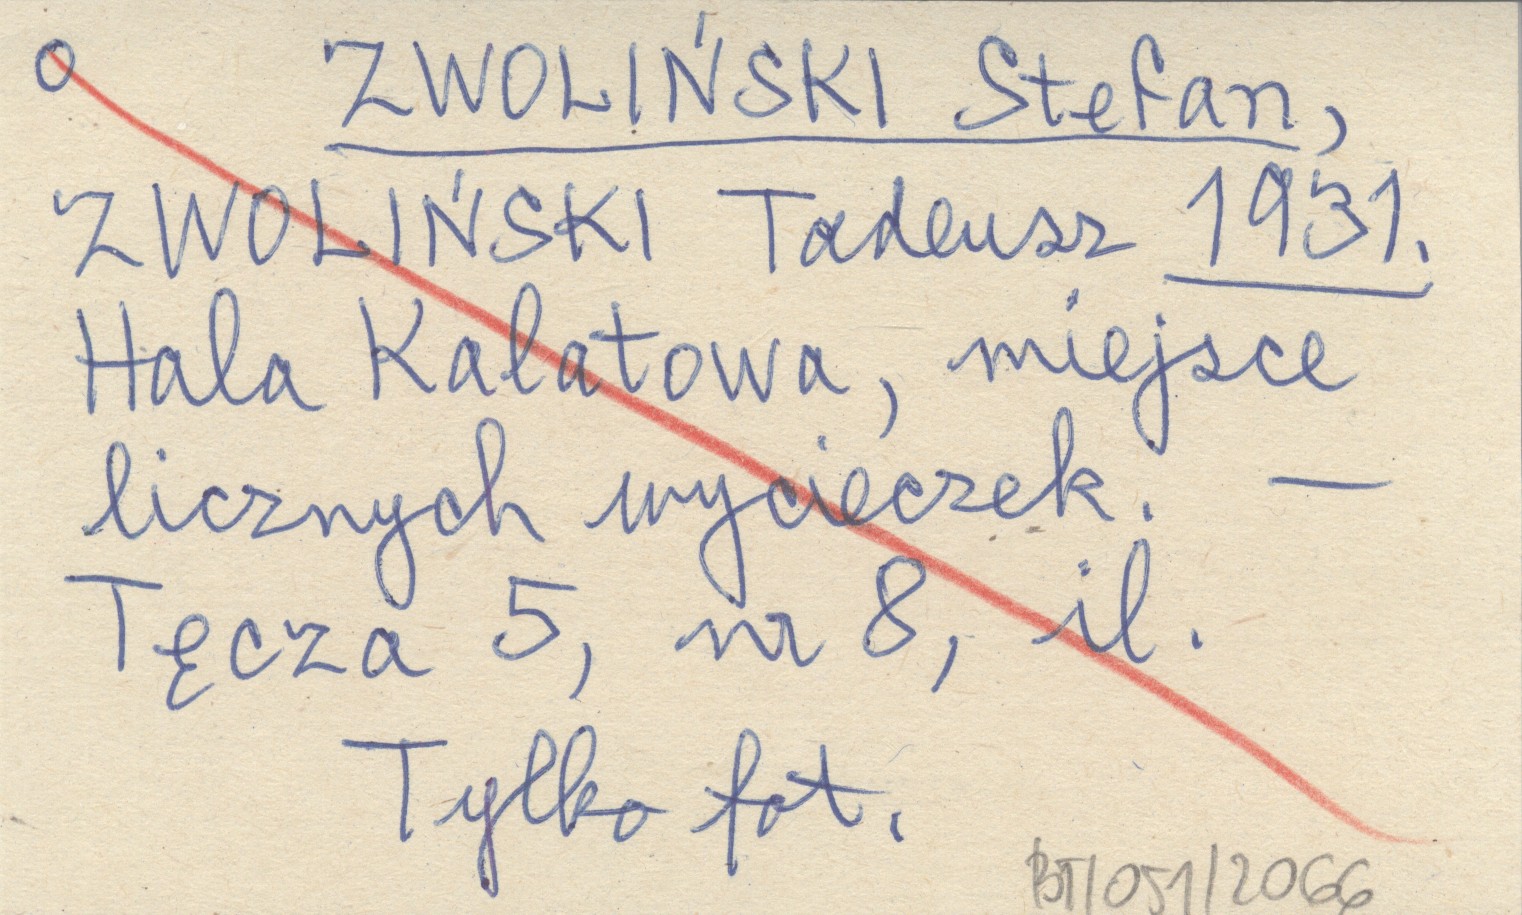 o ZWOLIŃSKI Stefan,
ZWOLIŃSKI Tadeusz 1931.
Hala Kalatowa, miejsce
licznych wycieczek. —
Tęcza 5, nr 8, il.
Tylko fot.
BT/051/2066